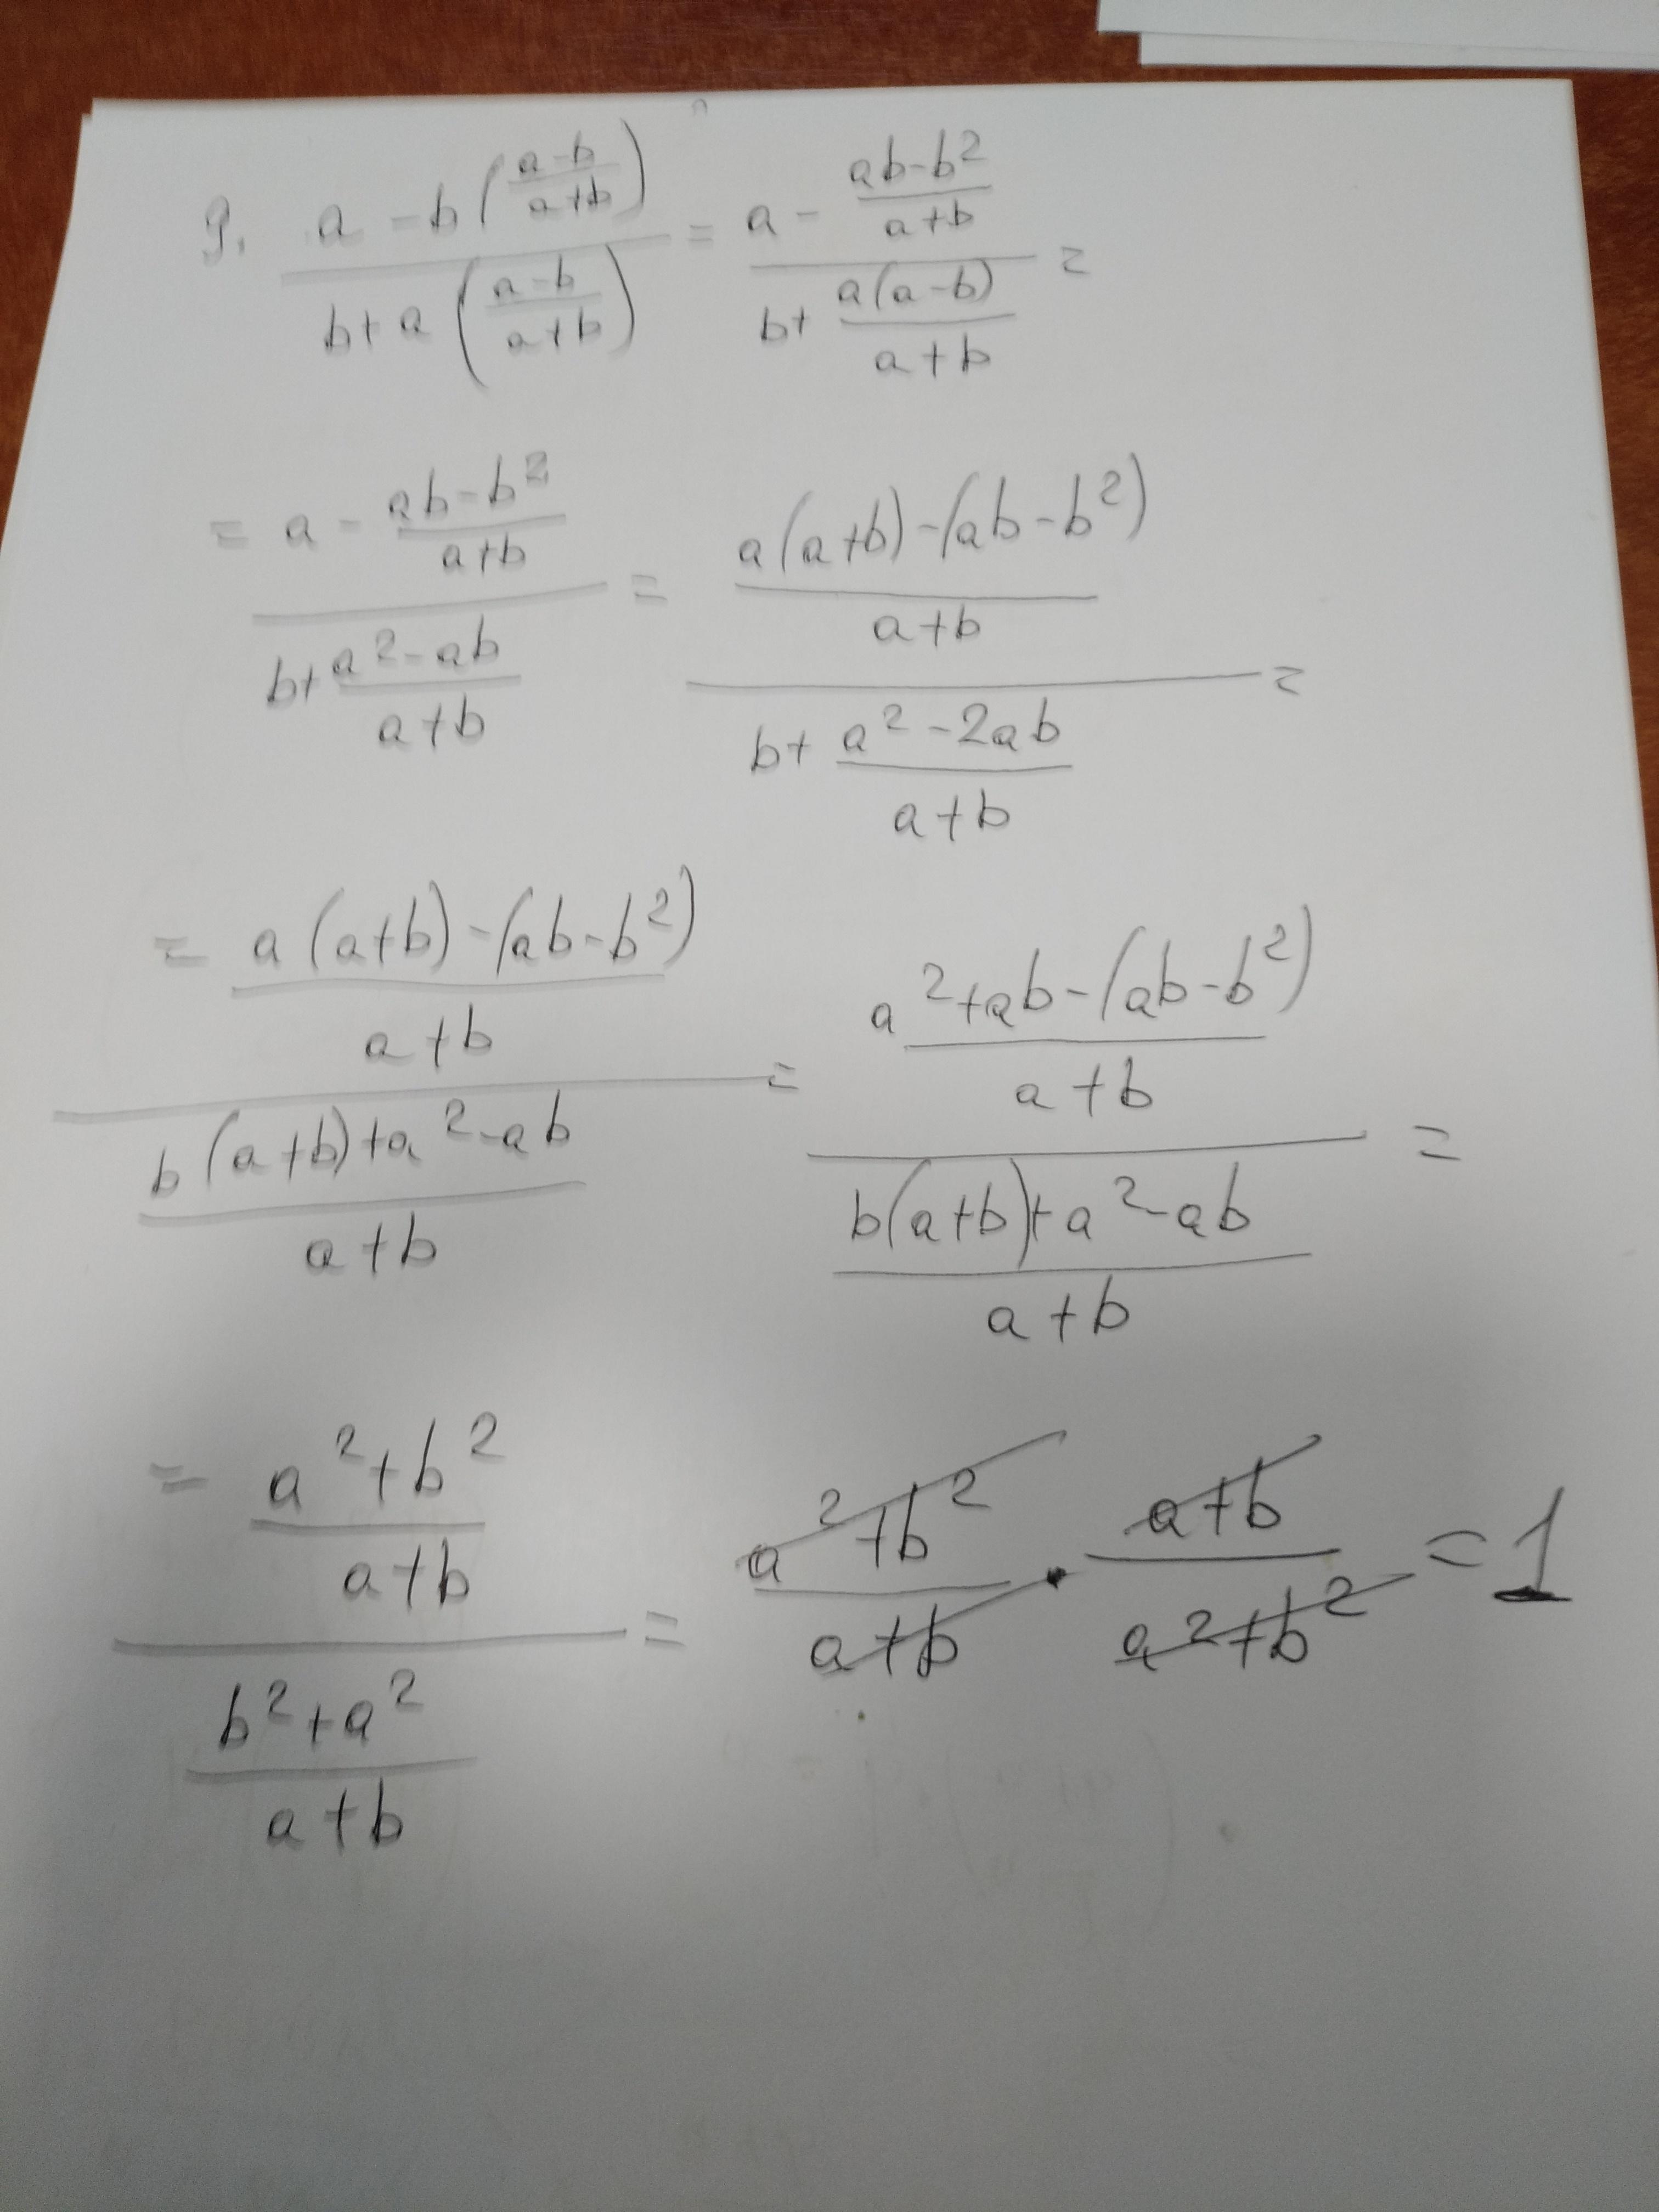 9. \frac{a-b\left(\frac{a-b}{a+b}\right)}{b+a\left(\frac{a-b}{a+b}\right)} = \frac{a-\frac{ab-b^2}{a+b}}{b+\frac{a(a-b)}{a+b}} =
= \frac{a-\frac{ab-b^2}{a+b}}{b+\frac{a^2-ab}{a+b}} = \frac{\frac{a(a+b)-(ab-b^2)}{a+b}}{b+\frac{a^2-2ab}{a+b}} =
= \frac{\frac{a(a+b)-(ab-b^2)}{a+b}}{\frac{b(a+b)+a^2-ab}{a+b}} = \frac{\frac{a^2+ab-(ab-b^2)}{a+b}}{\frac{b(a+b)+a^2-ab}{a+b}} =
= \frac{\frac{a^2+b^2}{a+b}}{\frac{b^2+a^2}{a+b}} = \frac{a^2+b^2}{a+b} \cdot \frac{a+b}{a^2+b^2} = 1